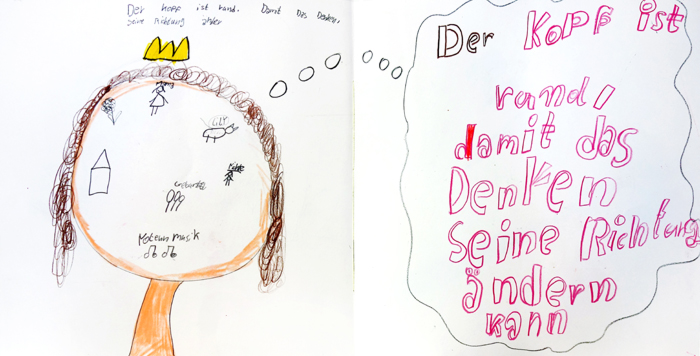 Der Kopf ist rund. Damit das Denken,
seine Richtung
LILLY
Motorn musik
Der Kopf ist
rund,
damit das
Denken
seine Richtung
ändern
kann